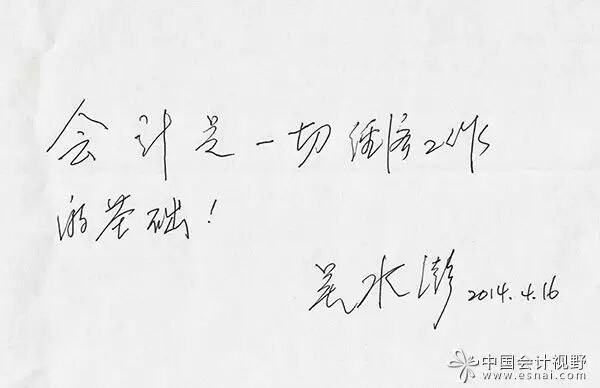 会计是一切经济工作
的基础！
吴水澎 2014.4.16
中国会计视野
www.esnai.com